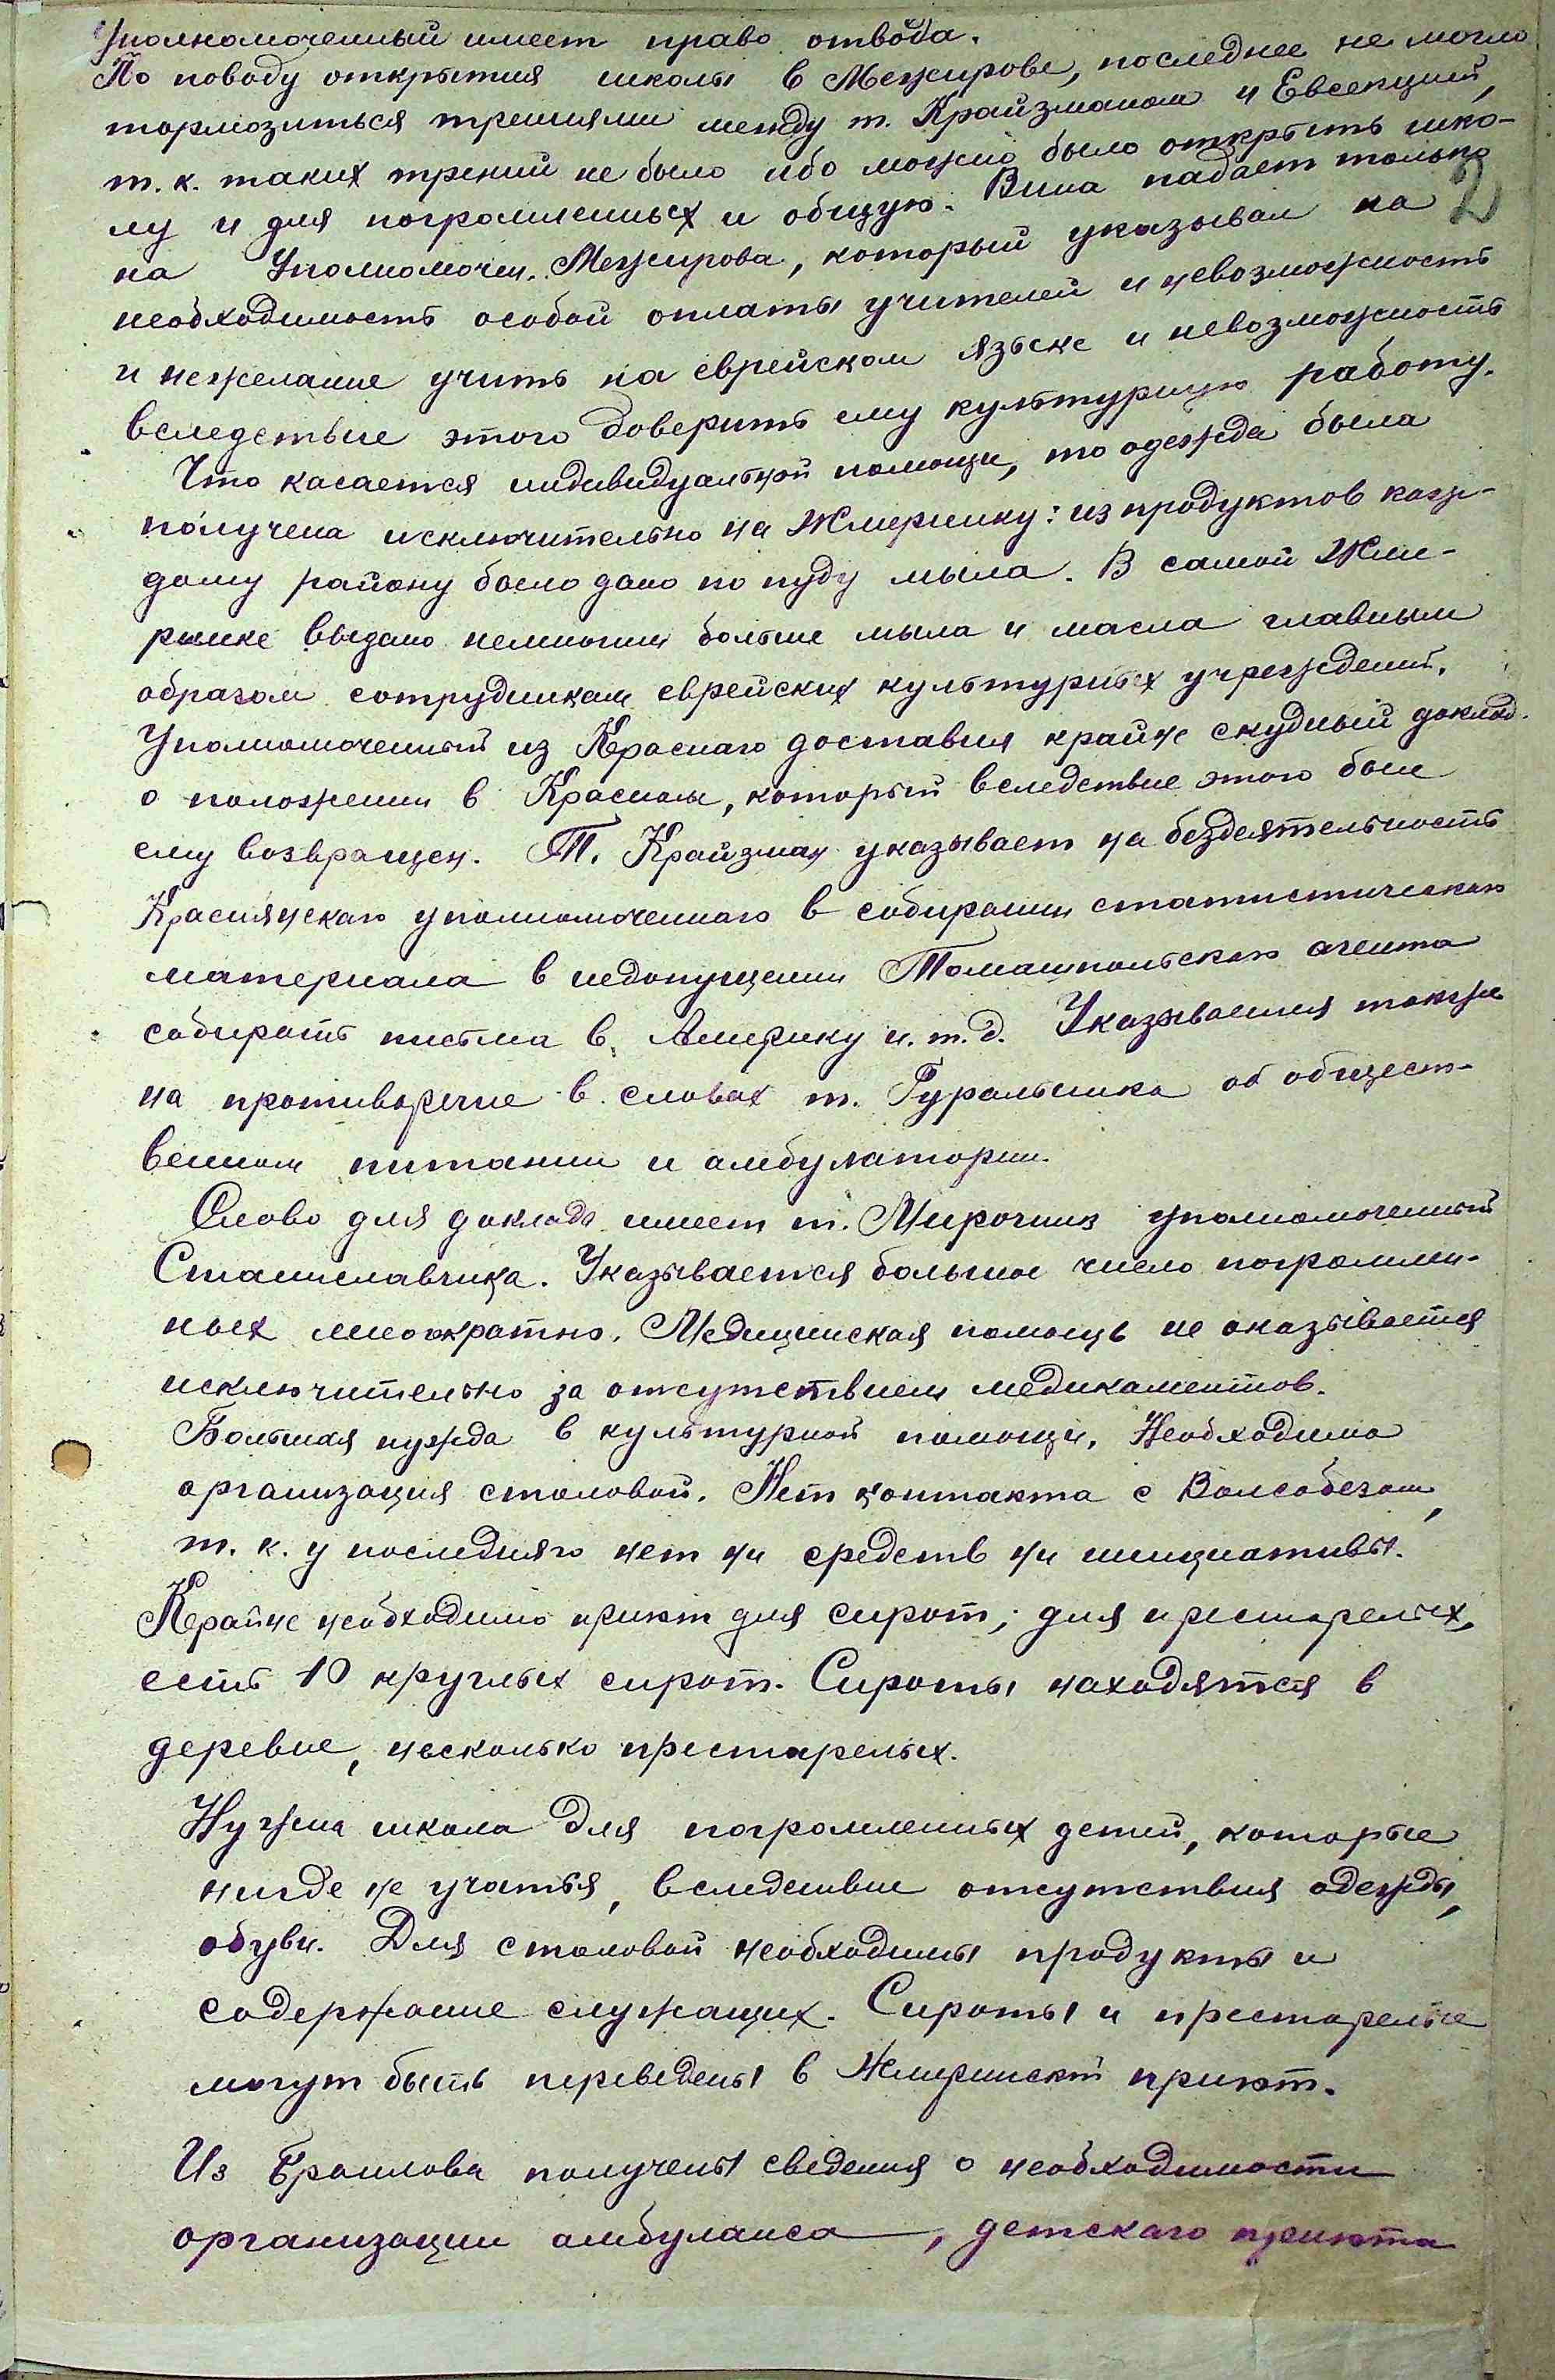 Уполномоченный имеет право отвода.
По поводу открытия школы в Межирове, последнее не могло
тормозиться трениями между т. Крайзманом и Евсекцией,
т. к. таких трений не было ибо можно было открыть шко-
лу и для погромленных и общую. Вина падает только
2
на Уполномочен. Межирова, который указывал на
необходимость особой оплаты учителей и невозможность
и нежелание учить на еврейском языке и невозможность
вследствие этого доверить ему культурную работу.
Что касается индивидуальной помощи, то одежда была
получена исключительно на Жмеринку: из продуктов каж-
дому району было дано по пуду мыла. В самой Жме-
ринке выдано немногим больше мыла и масла главным
образом сотрудникам еврейских культурных учреждений.
Уполномоченный из Краснаго доставил крайне скудный доклад
о положении в Красном, который вследствие этого был
ему возвращен. Т. Крайзман указывает на бездеятельность
Краснянскаго уполномоченнаго в собирании статистическаго
материала в недопущении Томашпольскаго агента
собирать письма в Америку и. т. д. Указывается также
на противоречие в словах т. Гуральника об общест-
венном питании и амбулатории.
Слово для доклада имеет т. Мирочник уполномоченный
Станиславчика. Указывается большое число погромлен-
ных многократно. Медицинская помощь не оказывается
исключительно за отсутствием медикаментов.
Большая нужда в культурной помощи. Необходима
организация столовой. Нет контакта с Волсобезом,
т. к. у последняго нет ни средств ни инициативы.
Крайне необходимо приют для сирот; для престарелых,
есть 10 круглых сирот. Сироты находятся в
деревне, несколько престарелых.
Нужна школа для погромленных детей, которые
нигде не учатья, вследствие отсутствия одежды,
обуви. Для столовой необходимы продукты и
содержание служащих. Сироты и престарелые
могут быть переведены в Жмеринский приют.
Из Браилова получены сведения о необходимости
организации амбуланса, детскаго приюта